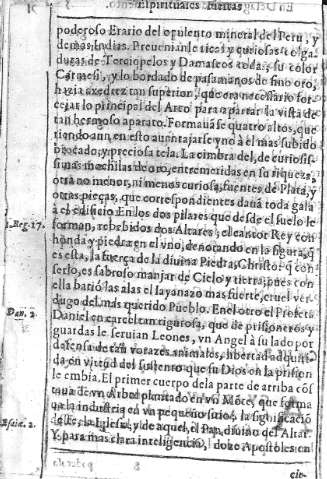 Espirituales Fiestas
poderoso Erario del opulento mineral del Peru, y
demas Indias. Preuenianle ricas y curiosas colga-
duras de Terciopelos y Damascos su color
Carmesi, y lo bordado de pasamanos de fino oro,
hazia axedrez tan superior, que era necessario for-
cejar lo principal del Arco para apartar la vista de
tan hermoso aparato. Formauāse quatro altos, que
tiendo aun en esto auentajarse vno à el mas subido
brocado, y preciosa tela. La cimbra del, de curiosis-
simas mochilas de oro, entremetidas en su riqueza,
otra no menor, ni menos curiosa, fuentes de Plata, y
otras pieças, que correspondientes dauā toda gala
à el edificio. En los dos pilares que desde el suelo le
1. Reg. 17. forman, rebebidos dos Altares; el cantor Rey con
honda y piedra en el vno, denotando en la figura, q̄
es esta, la fuerça de la diuina Piedra, Christo: q̄ con
serlo, es sabroso manjar de Cielo y tierra, pues con
ella batiò las alas el layanazo mas fuerte, cruel ver-
Dan. 2. dugo del mas querido Pueblo. En el otro el Profeta
Daniel en carcel tan rigurosa, que de prisioneros y
guardas le seruian Leones, vn Angel à su lado por
defensa de tan vorazes animales, libertad adquiri-
da en virtud del sustento que su Dios en la prision
le embia. El primer cuerpo de la parte de arriba cōs
taua de vn Arbol plantado en vn Mōte, que forma
Esaia. 2. ua la industria en vn pequeño sitio, la significaciō
deste, la Iglesia, y de aquel, el Pan diuino del Altar.
Y para mas clara inteligencia, doze Apostoles en
cir-